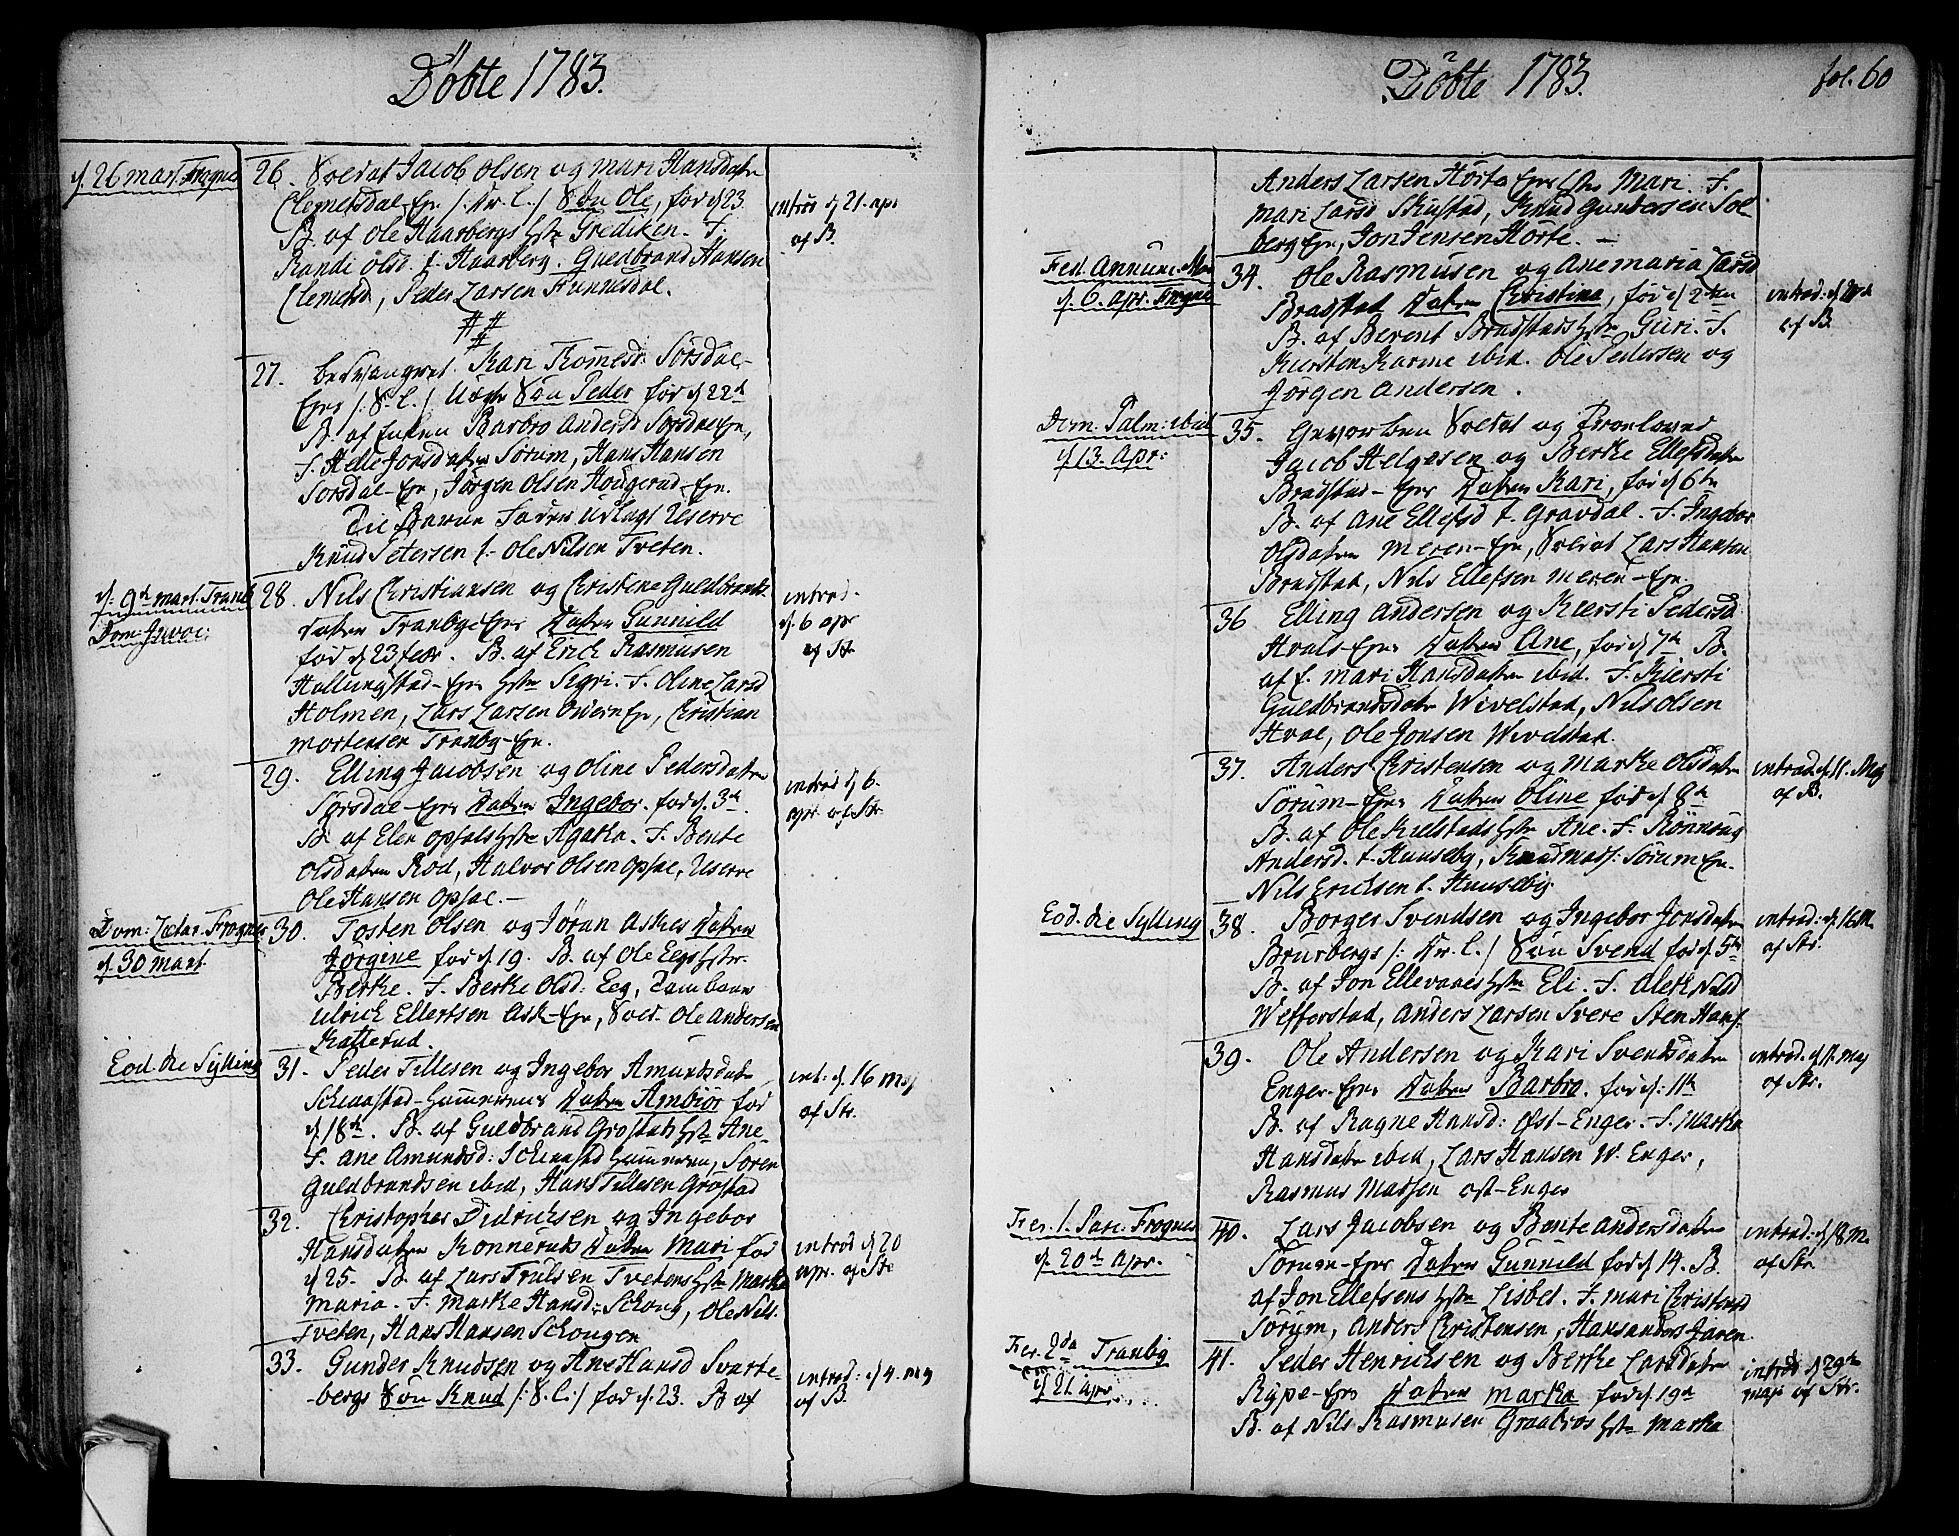 Döbte 1783.
d. 26 mart. Frogner
26. Soldat Jacob Olsen og Mari Hansdatr
Clemetsdal-Eje /: Kr. L. / Sön Ole, föd d 23
B. af Ole Haarbergs hstr Grediken. F.
Randi Olsd. t. Haarberg. Guldbrand Hansen
Clemetsd, Peder Larsen Funnesdal.
introd d 21. apr
af B.
27. besvangret Kari Thomesd. Sörsdal-
Ejes /: S. l. / Uægte Sön Peder föd d 22d
B. af Enken Barbro Andersd. Sörsdal Eje,
F. Helle Jonsdatter Sörum, Hans Hansen
Sörsdal-Eje, Jörgen Olsen Hougerud-Eje.
Til Barne Fader udlagt Reserve
Knud Petersen t. Ole Nilsen Tveten.
d. 9d mart. Tranbÿ
Dom: Invoc:
28. Nils Christiansen og Christine Guldbrands-
datter Tranbye Ejes Datter Gunnild
föd d 23 febr. B. af Erick Rasmusen
Hallingstad-Ejes hstr Sigri. F. Oline Larsd
Holmen, Lars Larsen Overn Eje, Christian
Mortensen Tranby-Eje.
introd.
d. 6 apr
af Str
29. Elling Jacobsen og Oline Pedersdatter
Sörsdal-Ejes Datter Ingebor. föd d. 3d.
B. af Elen Opsals hstr Agatha. F. Bente
Olsdatter Röd, Halvor Olsen Opsal, Reserve
Ole Hansen Opsal.
introd d 6.
apr af Str.
Dom: Lætar. Frogner
d. 30 mart
30. Tosten Olsen og Jöran Askes Datter
Jörgine föd d 19. B. af Ole Eegs hstr.
Berthe. F. Berthe Olsd: Eeg, Tambour
Ulrick Ellertsen Ask-Eje, Sold. Ole Andersen
Katterud.
Eod. die Sylling
31. Peder Tillesen og Ingebor Amundsdatr
Schaastad-Hammerens Datter Ambiör föd
d. 18de. B. af Guldbrand Gröstads hstr Ane.
F. Ane Amundsd: Schaastad Hammeren, Sören
Guldbrandsen ibid, Hans Tillesen Gröstad
int: d. 16 maj
af Str.
32. Christopher Didricksen og Ingebor
Hansdatter Konneruds Datter Mari föd
d 25. B. af Lars Trulsen Tvetens hstr Marthe
Maria. F. Marthe Hansd: Schoug, Ole Nils:
Tveten, Hans Hansen Schougen
introd d 20
apr. af Str
33. Gunder Knudsen og Ane Hansd Svarte-
bergs Sön Knud /: S. l. / föd d. 23. B. af
introd: d 4. maj
af B.
Döbte 1783.
fol. 60
Anders Larsen Horte Ejes hstr Mari. F.
Mari Larsd Skustad, Knud Gundersen Sol-
berg Eje, Jon Jensen Horte. –
Fest. Annunc. Mar
d. 6. apr. Frogner
34. Ole Rasmusen og Anemaria Larsd
Bradstad Datter Christina, föd d 2den
B. af Berent Bradstads hstr Guri. F.
Kiersten Karine ibid. Ole Pedersen og
Jörgen Andersen.
af B.
Dom: Palm: ibid
d 13. apr:
35. Geworben Soldat og Trovlovede
Jacob Helgesen og Berthe Ellefsdatr
Bradstad-Ejes Datter Kari, föd d 6te
B. af Ane Ellefsd t. Gravdal. F. Ingebor
Olsdatter Meren-Eje, Soldat Lars Hansen
Bradstad, Nils Ellefsen Meren-Eje.
36 Elling Andersen og Kiersti Pedersd
Hvals-Ejes Datter Ane, föd d 7d B.
af t. Mari Hansdatter ibid. F. Kiersti
Guldbrandsdatr Wivelstad, Nils Olsen
Hval, Ole Jonsen Wivelstad.
37. Anders Christensen og Marthe Olsdatr
Sörum-Ejes Datter Oline föd d 8d
B. af Ole Kielstads hstr Ane. F. Rönnaug
Andersd. t. Huuseby, Knud Mars: Sörum Eje.
Nils Ericksen t. Huusebÿ.
introd. d. 11. Maj
af B.
Eod. die Sylling
38. Borger Svendsen og Ingebor Jonsdatr
Brurbergs /: Kr. L. / Sön Svend föd d 5te
B. af Jon Ellevanes hstr Eli. F. Aleth Nilsd
Wefferstad, Anders Larsen Svere Sten Hans:
introd: d. 16 M.
af Str.
39. Ole Andersen og Kari Svendsdatter
Enger-Ejes Datter Barbro. föd d: 11te
B. af Ragne Hansd: Öst-Enger. F. Marthe
Hansdatr ibid, Lars Hansen W. Enger,
Rasmus Madsen Öst-Enger
introd. d 11. maj
af Str.
Fer. 1. Pasc. Frogner
d. 20d apr.
40. Lars Jacobsen og Bente Andersdatter
Sörum-Ejes Datter Gunnild föd d 14. B.
af Jon Ellefsens hstr Lisbet. F. Mari Christensd
Sörum, Anders Christensen, Hans Anders Jaren
introd: d 18 M.
af Str
Fer. 2da Tranbÿ
d 21. apr.
41. Peder Henricksen og Berthe Larsdatr
Rype-Ejes Datter Martha föd d. 19d
B. af Nils Rasmusen Graabros hstr Martha
introd d 29te
maji af Str.